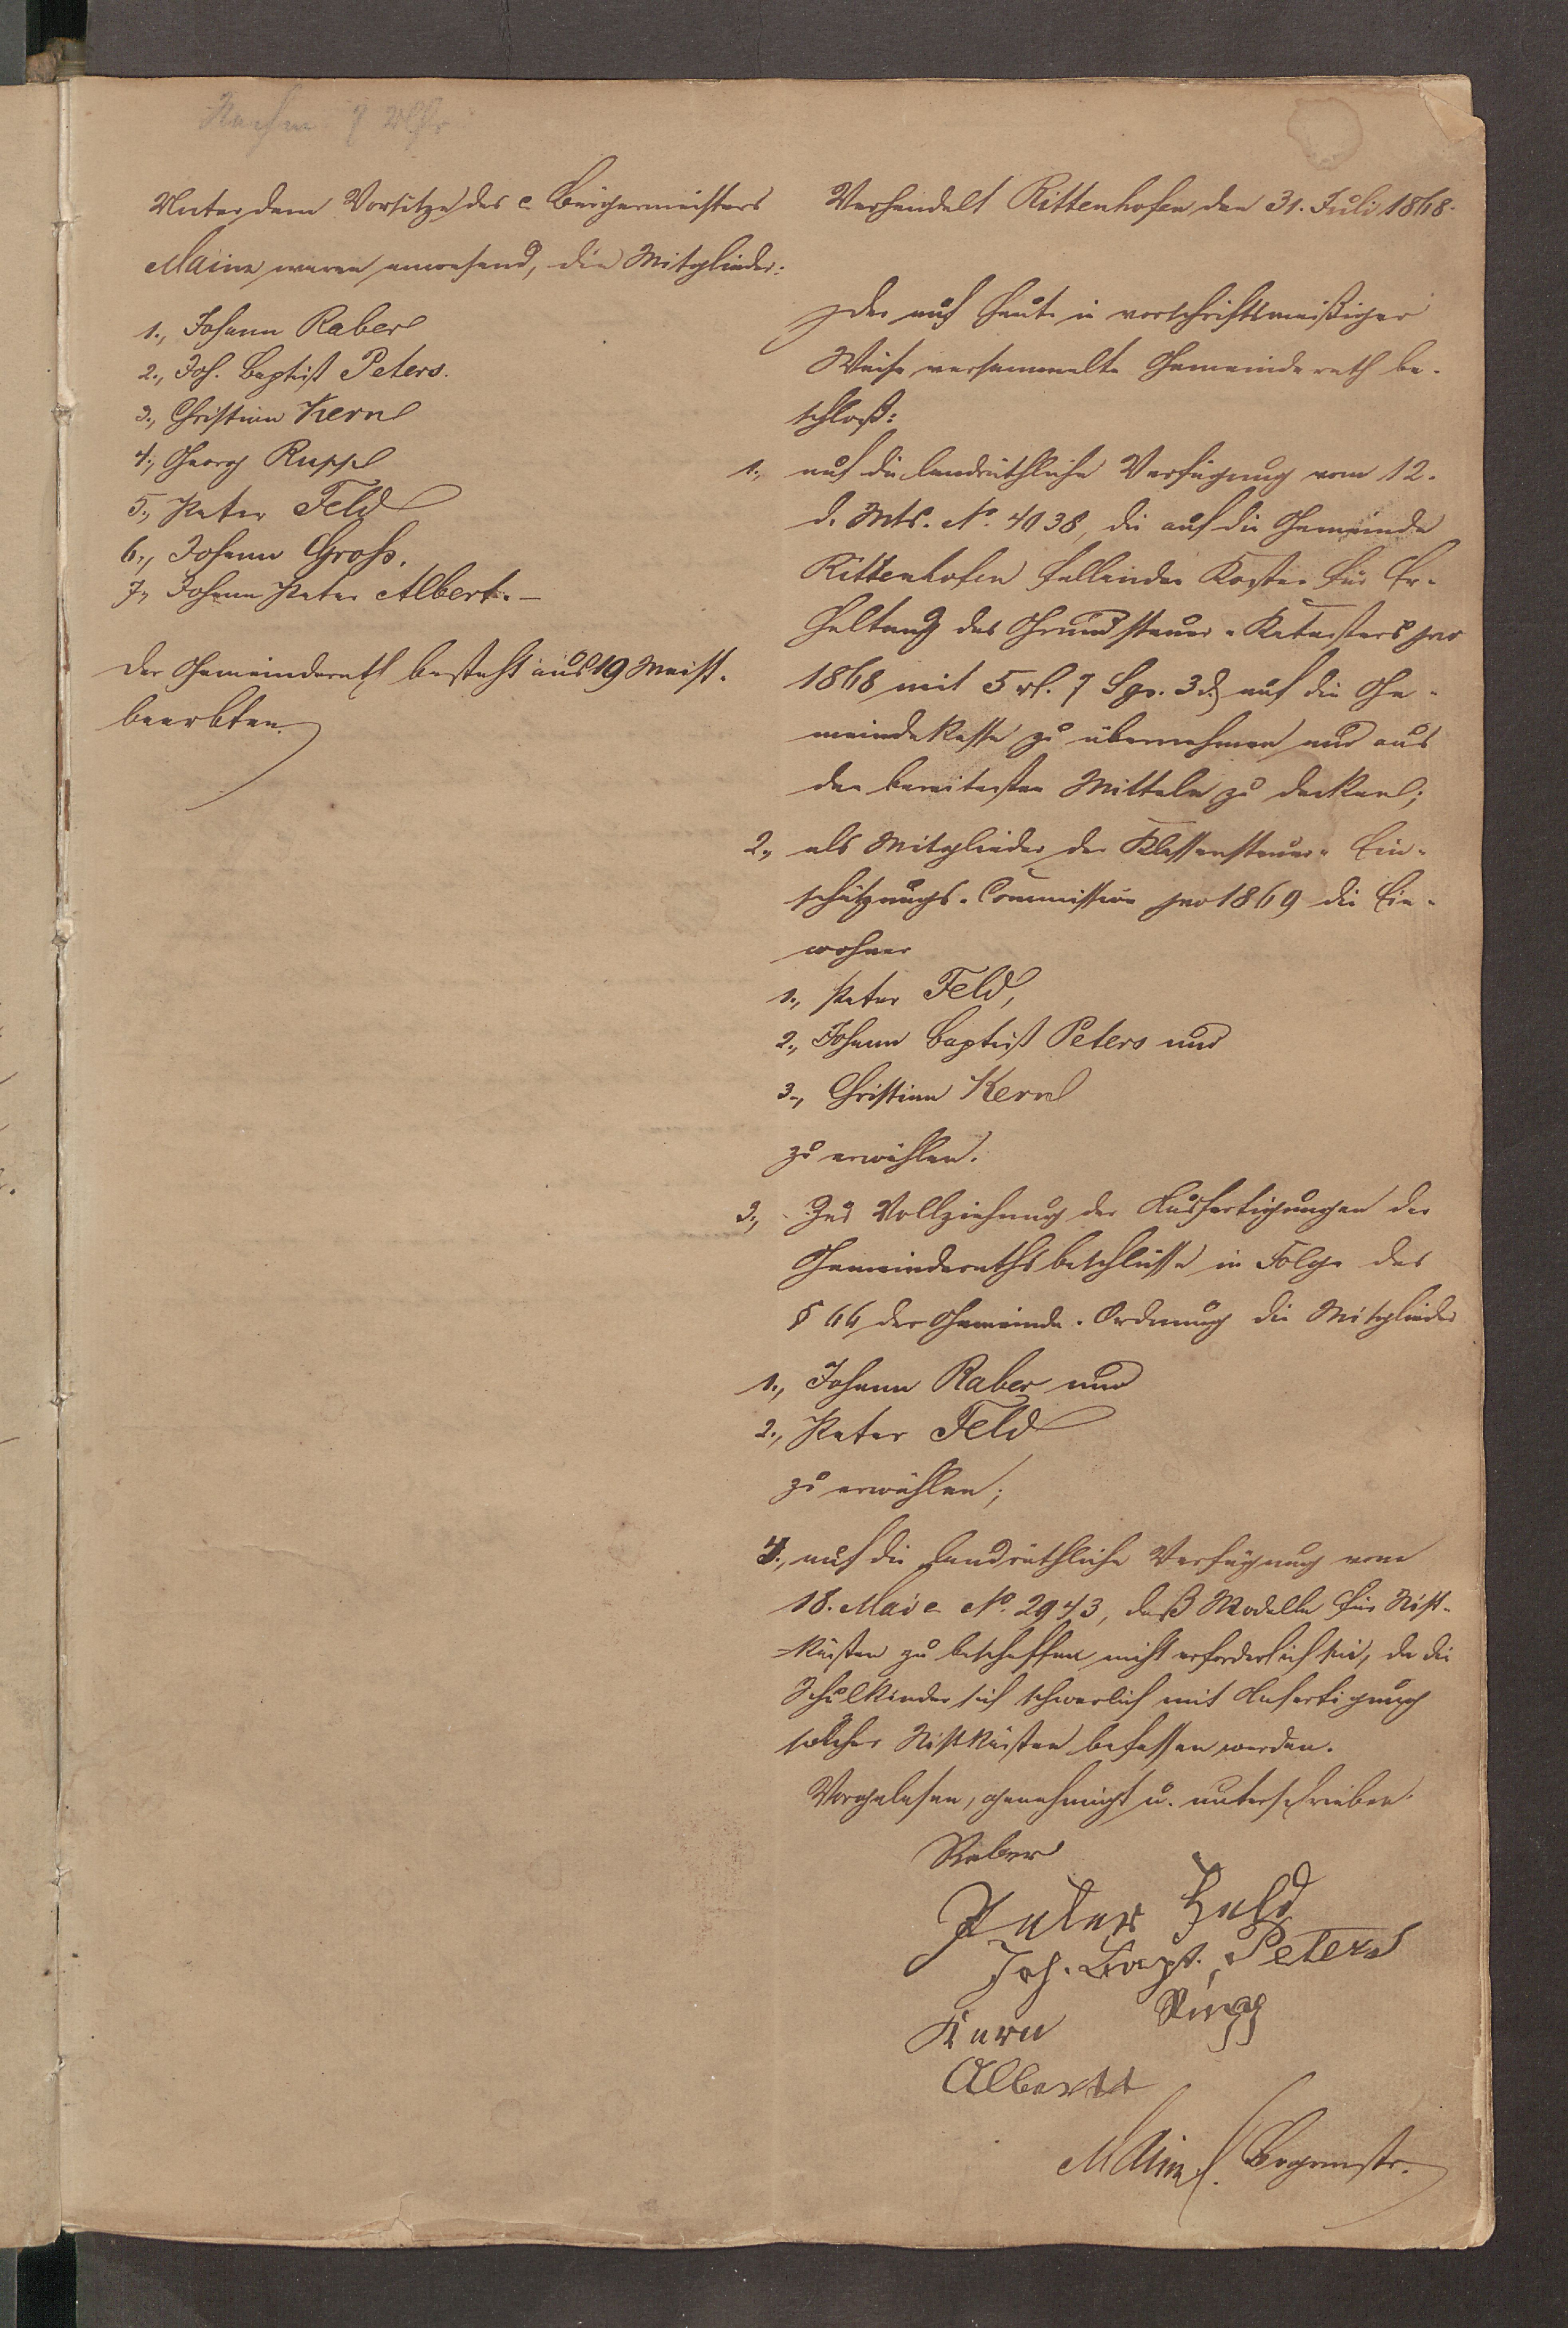 Unter dem Vorsitze des c. Bürgermeisters
Mainz waren anwesend, die Mitglieder:
1., Johann Raber
2., Joh. Baptist Peters.
3., Christian Kern
4., Georg Rupp
5., Peter Feld
6., Johann Groß.
7., Johann Peter Albert. –
Der Gemeinderath besteht aus 19 Meist-
beerbten.
Verhandelt Rittenhofen den 31. Juli 1868.
Der auf heute in vorschriftsmäßiger
Weise versammelte Gemeinderath be-
schloß:
1., auf die landräthliche Verfügung vom 12.
d. Mts. No. 4038, die auf die Gemeinde
Rittenhofen fallenden Kosten für Er-
haltung des Grundsteuer-Katasters pro
1868 mit 5 rl. 7 Sgr. 3 d. auf die Ge-
meindekasse zu übernehmen und aus
den bereitesten Mitteln zu decken;
2., als Mitglieder der Klassensteuer-Ein-
schätzungs-Commission pro 1869 die Ein-
wohner
1., Peter Feld,
2., Johann Baptist Peters und
3., Christian Kern
zu erwählen.
3., Zur Vollziehung der Ausfertigungen der
Gemeinderathsbeschlüsse in Folge des
§ 66 der Gemeinde-Ordnung die Mitglieder
1., Johann Raber und
2., Peter Feld
zu erwählen;
4., auf die landräthliche Verfügung vom
18. Mai c. No. 2943, daß Modelle für Nist-
=kästen zu beschaffen nicht erforderlich sei, da die
Schulkinder sich schwerlich mit Anfertigung
solcher Nistkästen befassen werden.
Vorgelesen, genehmigt u. unterschrieben.
Raber
Peter Feld
Joh. Bapt. Peters
Kern Rupp
Albertt
Mainz Brgrmstr.